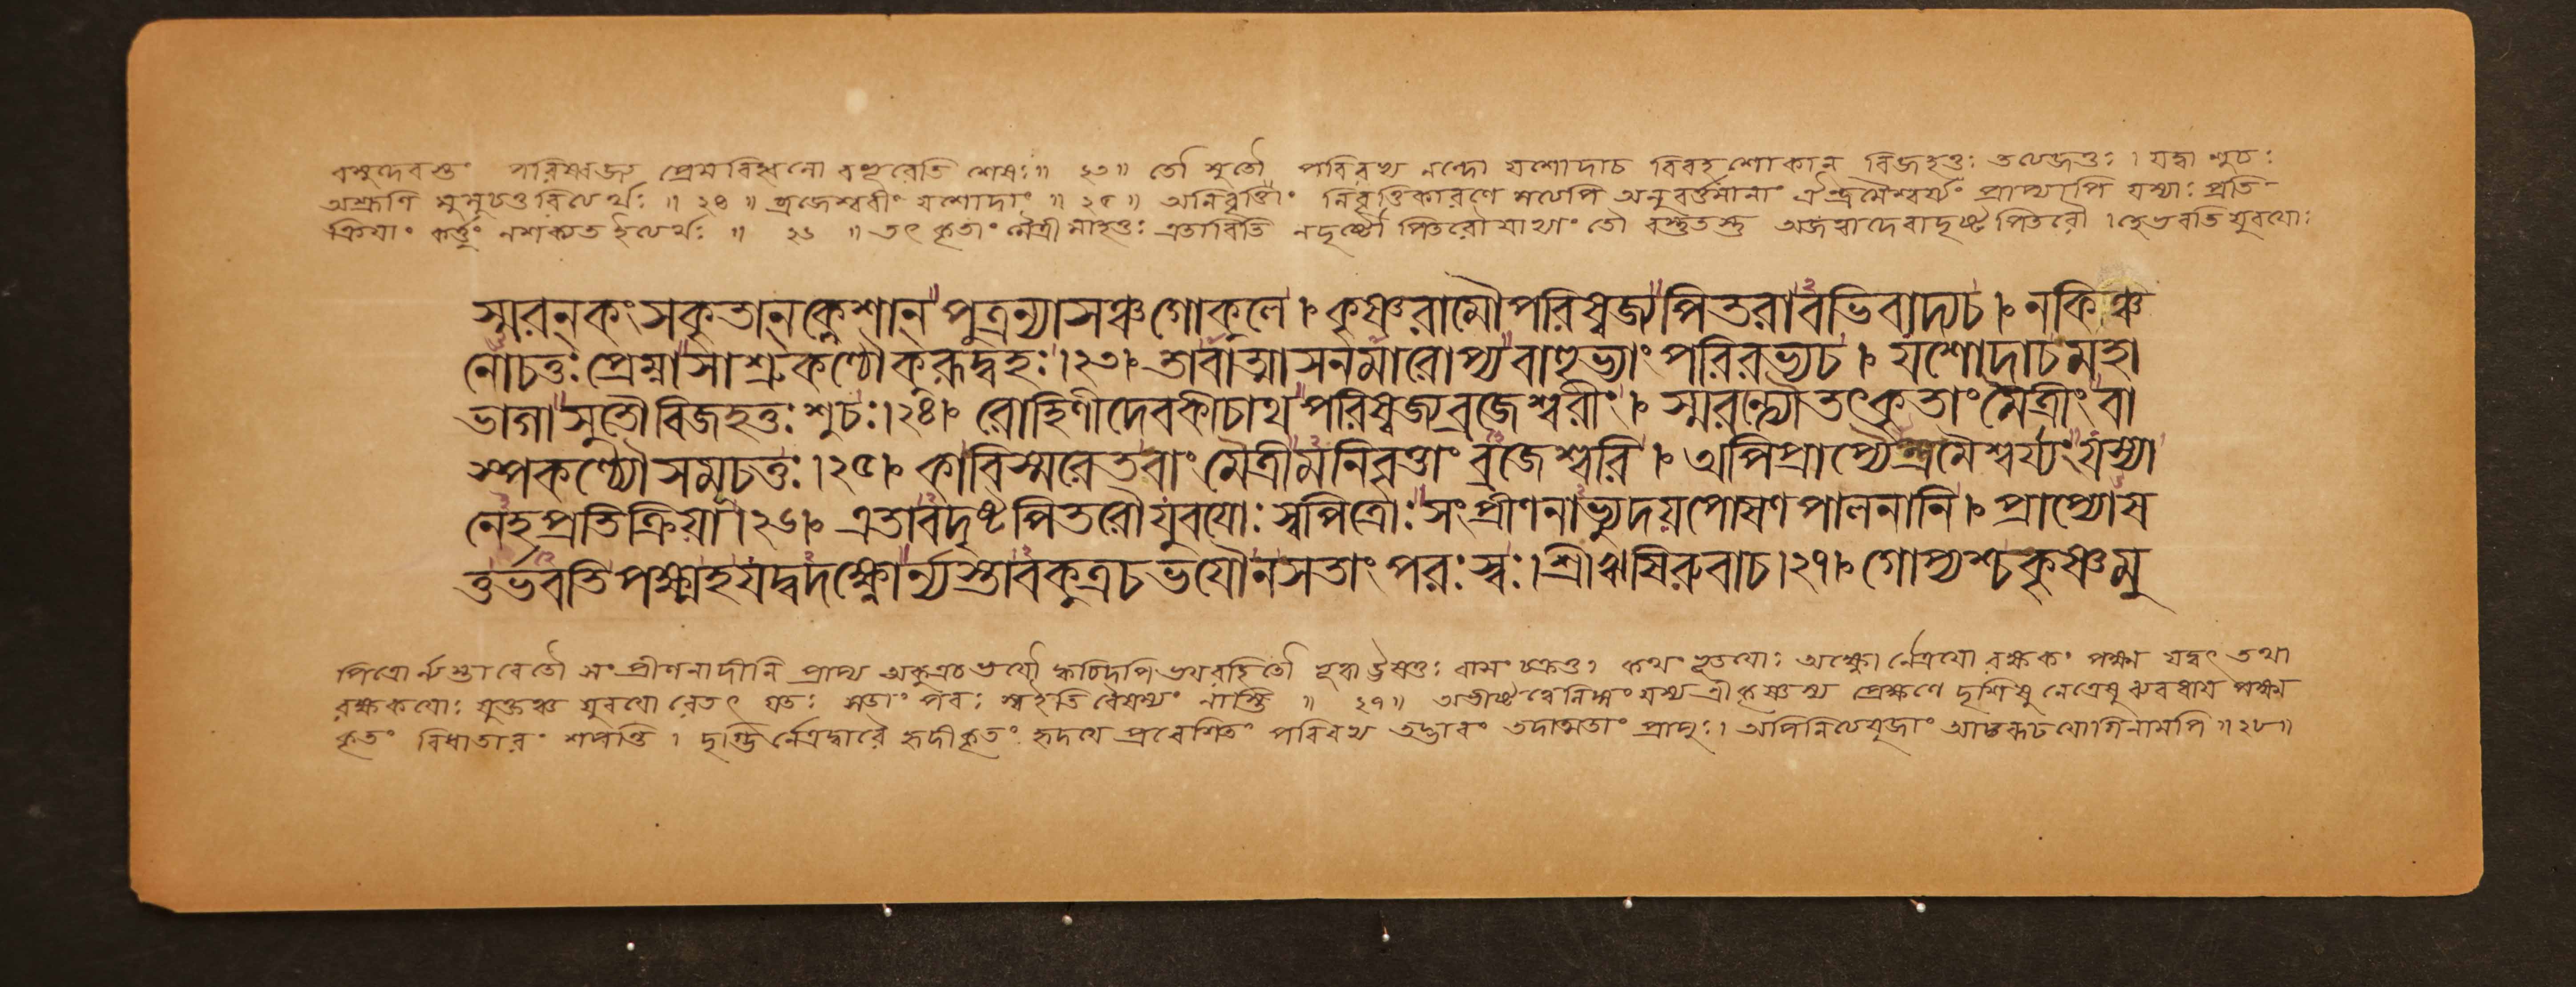 বসুদেবস্তং পরিষ্বজ্য প্রেমবিহ্বলো বভূবেতি শেষঃ॥ ২৩॥ তৌ সুতৌ পরিরভ্য নন্দো যশোদাচ বিরহশোকান্ বিজহতুঃ তত্যেজতুঃ। যদ্বা শুচঃ
অশ্রূণি মুমুচতুরিত্যর্থঃ॥ ২৪॥ ব্রজেশ্বরীং যশোদাং॥ ২৫॥ অনিবৃত্তাং নিবৃত্তিকারণে সত্যেপি অনুবর্ত্তমানাং ঐন্দ্রমৈশ্বর্য্যং প্রাপ্যাপি যস্যাঃ প্রতি
ক্রিয়াং কর্ত্তুং নশক্যত ইত্যর্থঃ॥ ২৬॥ তৎকৃতাং মৈত্রীমাহতুঃ এতাবিতি নদৃষ্টৌ পিতরৌ যাভ্যাং তৌ বস্তুতস্তু অজত্বাদেবাদৃষ্টপিতরৌ। হেভবতি যুবয়োঃ
স্মরন্ কংসকৃতান্ ক্লেশান্ পুত্রন্যাসঞ্চগোকুলে। কৃষ্ণরামৌপরিষ্বজ্যপিতরাবভিবাদ্যচ। নকিঞ্চ
নোচতুঃ প্রেম্নাসাশ্রুকণ্ঠৌকুরূদ্বহঃ।২৩। তাবাত্মাসনমারোপ্যবাহুভ্যাং পরিরভ্যচ। যশোদাচমহা
ভাগাসুতৌবিজহতুঃ শুচঃ।২৪। রোহিণীদেবকীচাথপরিষ্বজ্যব্রজেশ্বরীং। স্মরন্ত্যৌতৎকৃতাং মৈত্রীং বা
স্পকণ্ঠ্যৌসমূচতুঃ।২৫। কাবিস্মরেতবাং মৈত্রীমনিবৃত্তাং ব্রজেশ্বরি। অপিপ্রাপ্যৈন্দ্রমৈশ্বর্য্যং যস্যা
নেহপ্রতিক্রিয়া।২৬। এতাবদৃষ্টপিতরৌযুবয়োঃ স্মপিত্রোঃ সংপ্রীণনাভ্যুদয়পোষণপালনানি। প্রাপ্যোষ
তুর্ভবতিপক্ষ্মহযদ্বদক্ষ্ণোর্ন্যস্তাবকুত্রচভয়ৌনসতাং পরঃ স্বঃ। শ্রীঋষিরুবাচ।২৭। গোপ্যশ্চকৃষ্ণমু
পিত্রোর্ন্যস্তাবেতৌ সংপ্রীণনাদীনি প্রাপ্য অকুত্রচভয়ৌ ক্বচিদপি ভয়রহিতৌ ঊষতুঃ বাসং চক্রতুঃ কথং ভূতয়োঃ অক্ষ্ণোর্নেত্রয়ো রক্ষকং পক্ষ্ম যদ্বৎ তথা
রক্ষকয়োঃ যুক্তঞ্চ যুবয়োরেতৎ যতঃ সতাং পরঃ স্বইতি বৈষম্যং নাস্তি॥ ২৭॥ অভীষ্টত্বে যস্য শ্রীকৃষ্ণস্য প্রেক্ষণে দৃশিষু নেত্রেষু পক্ষ্ম
কৃতং বিধাতারং শপন্তি। দৃগ্ভির্নেত্রদ্বারৈ হৃদীকৃতং হৃদয়ে প্রবেশিতং পরিরভ্য তদ্ভাবং তদাত্মতাং প্রাপুঃ। অপিনিত্যযুজাং আরূঢযোগিনামপি॥২৮॥